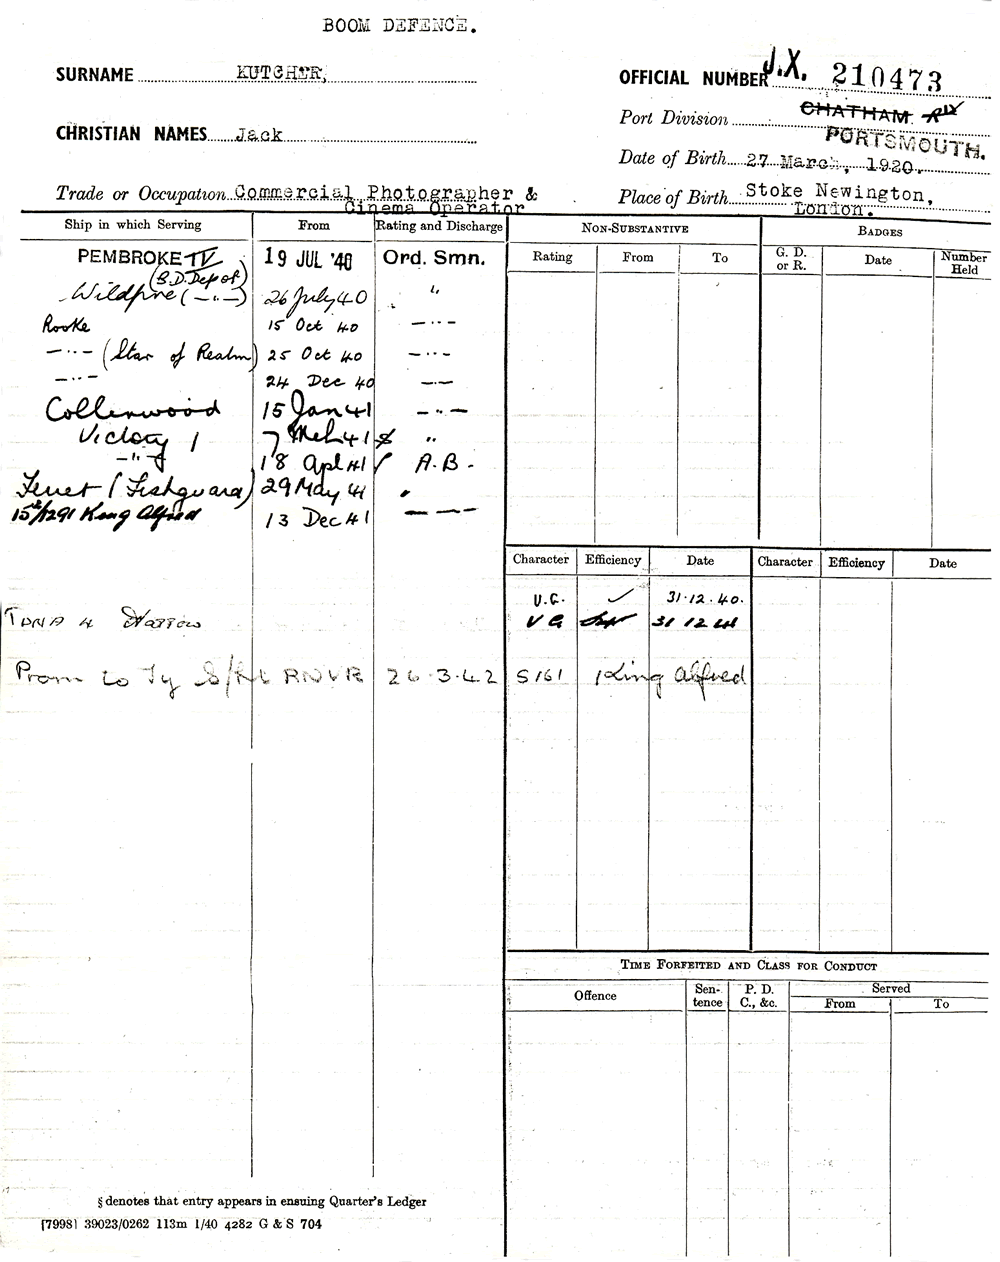 BOOM DEFENCE.
SURNAME KUTCHER,
OFFICIAL NUMBER J.X. 210473
Port Division CHATHAM
PORTSMOUTH.
CHRISTIAN NAMES Jack
Date of Birth 27 March, 1920.
Trade or Occupation Commercial Photographer &
Cinema Operator
Place of Birth Stoke Newington,
London.
Ship in which Serving From Rating and Discharge
NON-SUBSTANTIVE
BADGES
Rating From To
G. D. or R. Date Number Held
PEMBROKE IV 19 JUL '40 Ord. Smn.
(B.D. Depot)
Wildfire (-"-) 26 July 40 "
Rooke 15 Oct 40 -"-
-"- (Star of Realm) 25 Oct 40 -"-
-"- 24 Dec 40 -"-
Collingwood 15 Jan 41 -"-
Victory 1 7 Mch 41 "
-"- 18 Apl 41 A.B.
(Fishguard) 29 May 41 "
King Alfred 13 Dec 41 - - -
Character Efficiency Date Character Efficiency Date
V.G. ✓ 31.12.40.
V G 31 12 41
Prom to Ty S/Lt RNVR 26.3.42 S161 King Alfred
TIME FORFEITED AND CLASS FOR CONDUCT
Offence Sentence P. D. C., &c. Served
From To
§ denotes that entry appears in ensuing Quarter's Ledger
[7998] 39023/0262 113m 1/40 4282 G & S 704